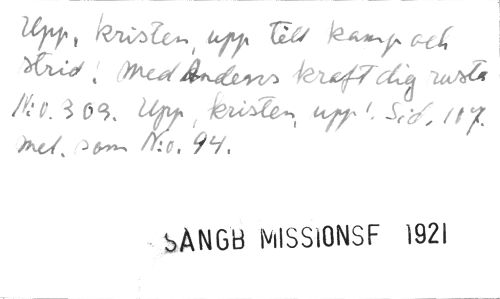 Upp, kristen, upp till kamp och
strid! Med Andens kraft dig rusta
N:o. 303. Upp, kristen, upp! Sid. 107.
mel. som N:o. 94.
SÅNGB MISSIONSF 1921